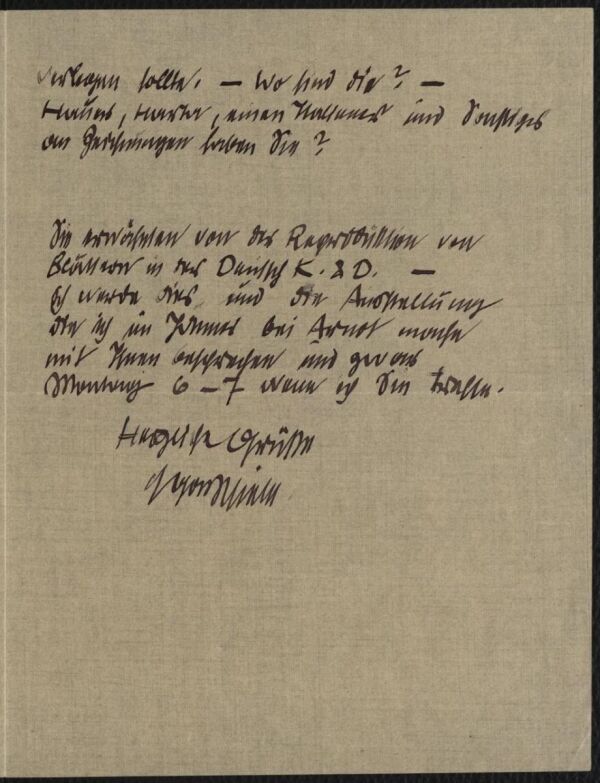 verlegen sollte. — Wo sind die? —
Hauer, Harta, einen Italiener und Sonstiges
an Zeichnungen haben Sie?
Sie erwähnten von der Reproduktion von
Blättern in der Deutsch K. & D. —
Ich werde dies und die Ausstellung
die ich im Jänner bei Arnot mache
mit Ihnen besprechen und zwar
Montag 6 – 7 wenn ich Sie treffe.
Herzliche Grüße
Egon Schiele